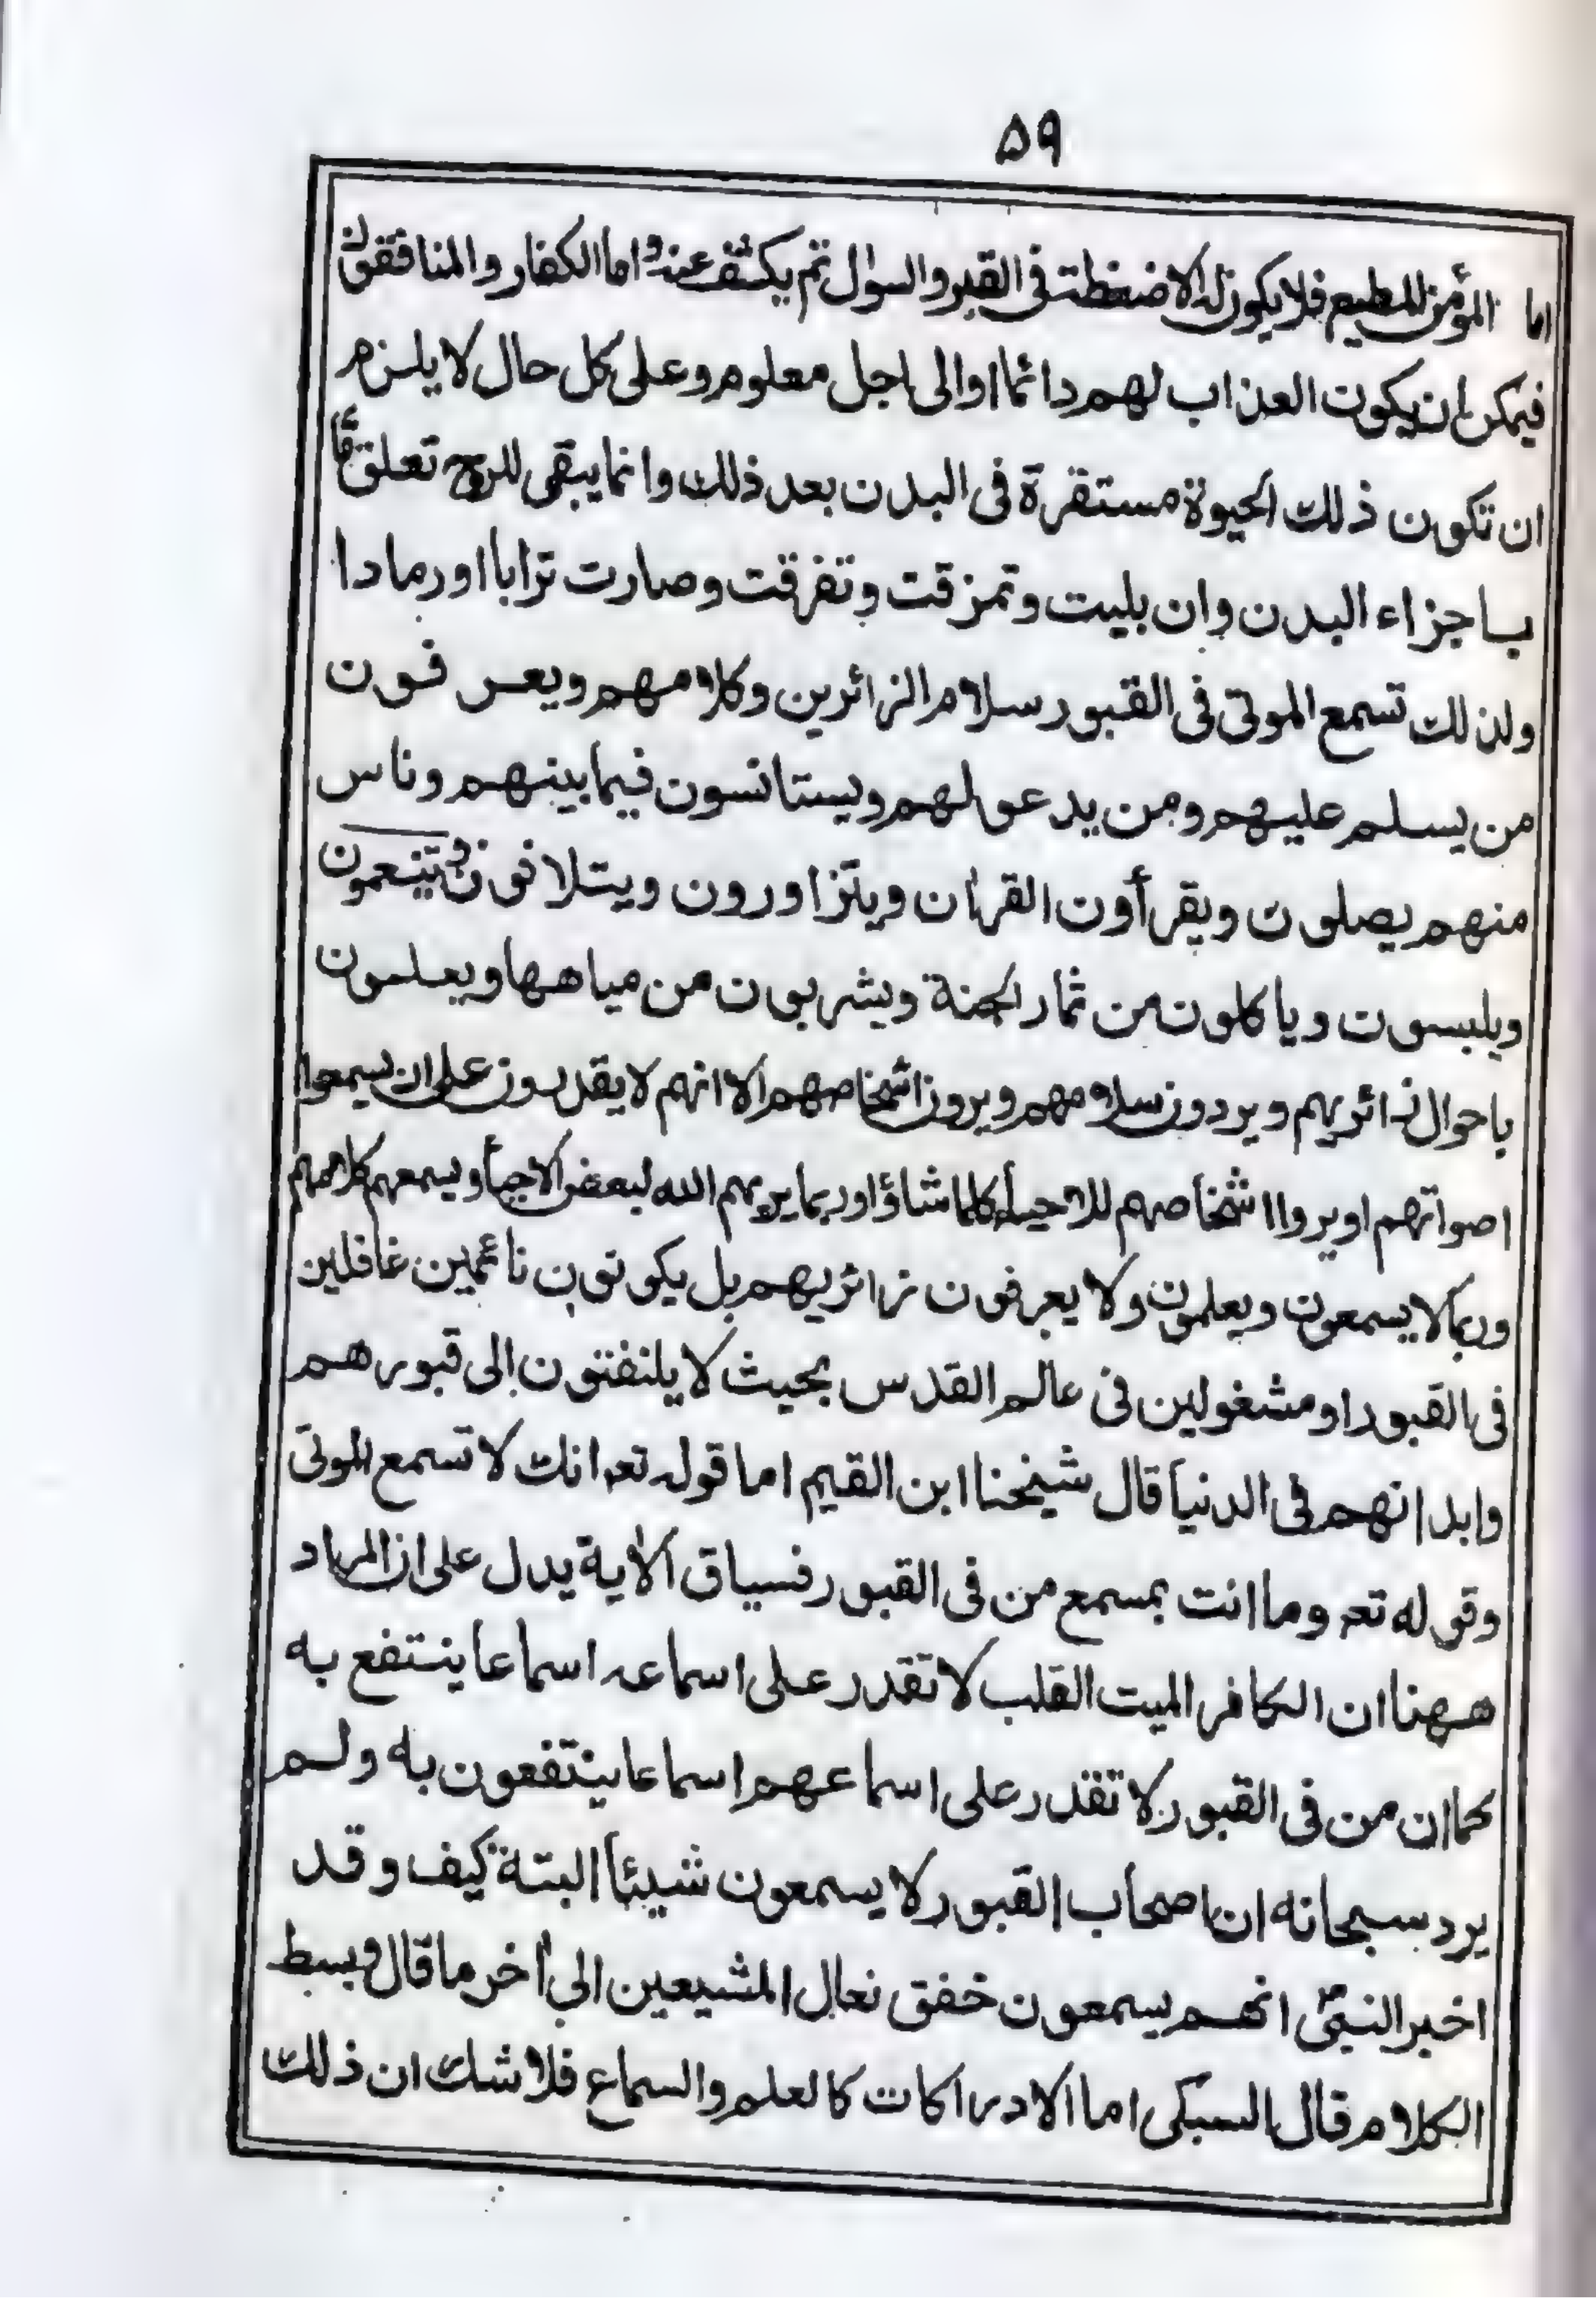 ۵۹
اما المؤمن المطيع فلا يكون له الا ضغطة فى القبر والسوال ثم يكشف عنه واما الكفار والمنافقون
فيمكن ان يكون العذاب لهم دائما او الى اجل معلوم وعلى كل حال لا يلزم
ان تكون ذلك الحيوة مستقرة فى البدن بعد ذلك وانما يبقى للروح تعلق ما
باجزاء البدن وان بليت وتمزقت وتفرقت وصارت ترابا او رمادا
ولذلك تسمع الموتى فى القبور سلام الزائرين وكلامهم ويعرفون
من يسلم عليهم ومن يدعو لهم ويستانسون فيما بينهم وناس
منهم يصلون ويقرأون القران ويتزاورون ويتلاقون ويتنعمون
ويلبسون وياكلون من ثمار الجنة ويشربون من مياهها ويعلمون
باحوال زائريهم ويردون سلامهم ويرون اشخاصهم الا انهم لا يقدرون على ان يسمعوا
اصواتهم او يروا اشخاصهم للاحياء كلما شاؤا وربما يريهم الله لبعض الاحياء ويسمعهم كلامهم
وربما لا يسمعون ويعلمون ولا يعرفون زائريهم بل يكونون نائمين غافلين
فى القبور او مشغولين فى عالم القدس بحيث لا يلتفتون الى قبورهم
وابدانهم فى الدنيا قال شيخنا ابن القيم اما قوله تعه انك لا تسمع الموتى
وقوله تعه وما انت بمسمع من فى القبور فسياق الاية يدل على ان المراد
ههنا ان الكافر الميت القلب لا تقدر على اسماعه اسماعا ينتفع به
كما ان من فى القبور لا تقدر على اسماعهم اسماعا ينتفعون به ولم
يرد سبحانه ان اصحاب القبور لا يسمعون شيئا البتة كيف وقد
اخبر النبىؐ انهم يسمعون خفق نعال المشيعين الى اخر ما قال وبسط
الكلام قال السبكى اما الادراكات كالعلم والسماع فلا شك ان ذلك